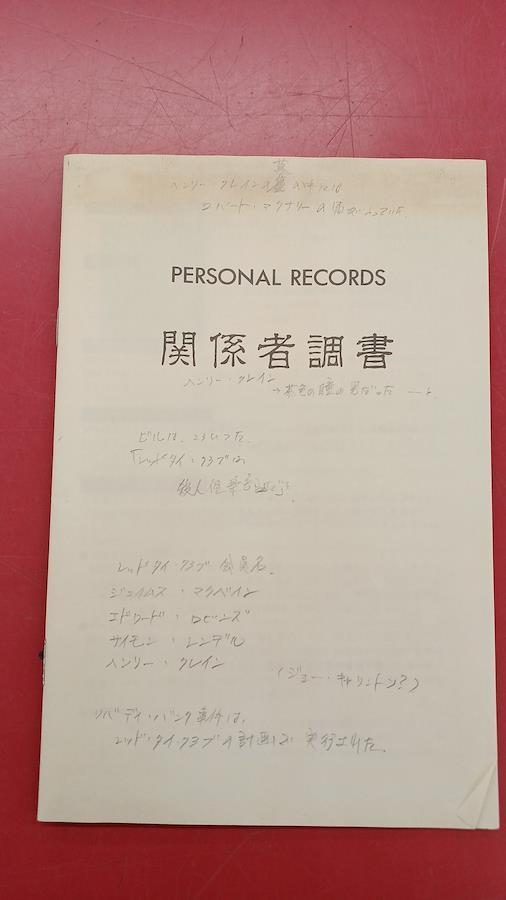 墓
ヘンリー・クレインの の中には
ロバート・マクナリーの 入っていた。
PERSONAL RECORDS
関係者調書
ヘンリー・クレイン
→茶色の瞳の男だった
ビルは、こういった。
「レッドタイ・クラブは、
レッドタイ・クラブ会員名。
ジェイムス・マクベイン
エドワード・ロビンズ
サイモン・レンデル
ヘンリー・クレイン
(ジョー・キャリントン?)
リバティ・バンク事件は、
レッド・タイ・クラブの計画で実行された。